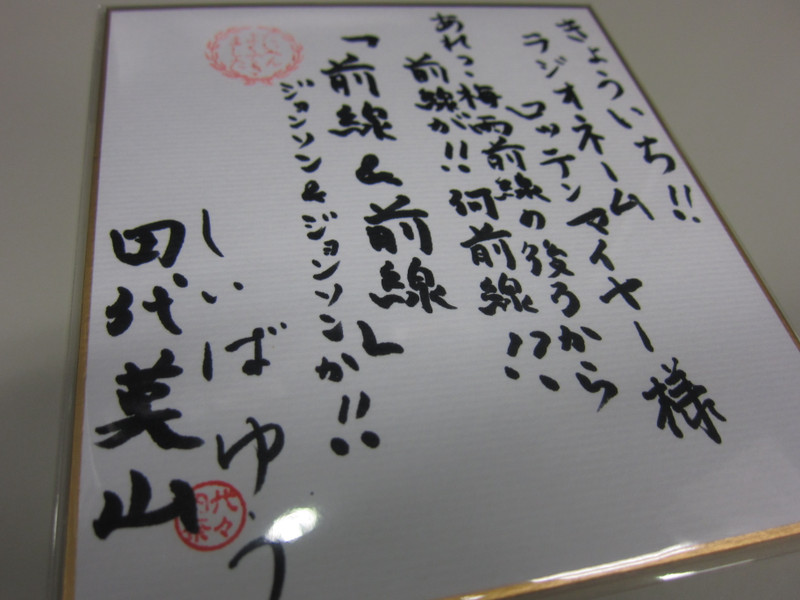 きょういち!!
ラジオネーム
コッテンマイヤー様
あれっ、梅雨前線の後ろから
前線が!!何前線!?
「前線&前線」
ジョンソン&ジョンソンか!!
しいばゆう
田代莫山